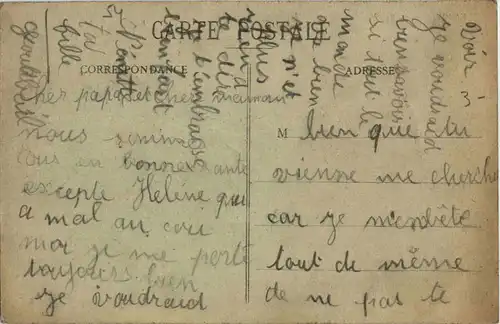 CARTE POSTALE
CORRESPONDANCE
ADRESSE
cher papa et cher maman
nous sommes
tous en bonne sante
excepte Hélène qui
a mal au cou
moi je me porte
toujours bien
je voudraid
M bien que tu
vienne me cherche
car je m'enbête
tout de même
de ne pas te
voir
je voudraid
si tout le
monde
bien
je n'et
plus
rien
te dire
je t'embrasse
ta
fille